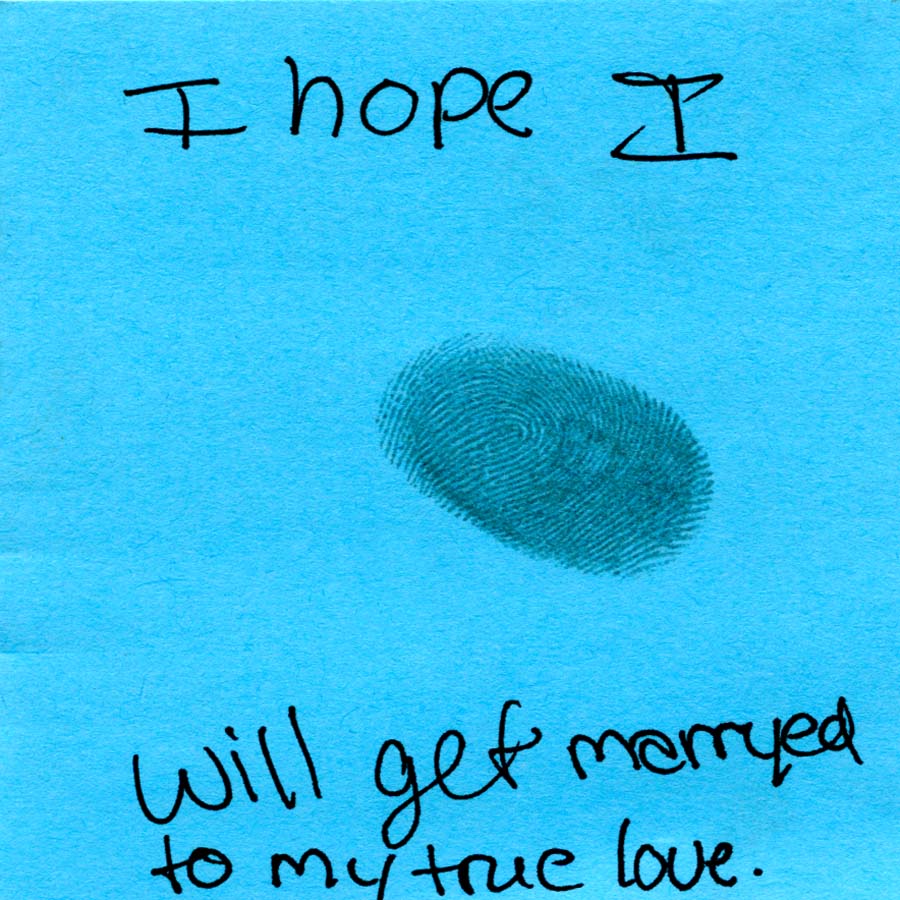 I hope I
will get marryed
to my true love.